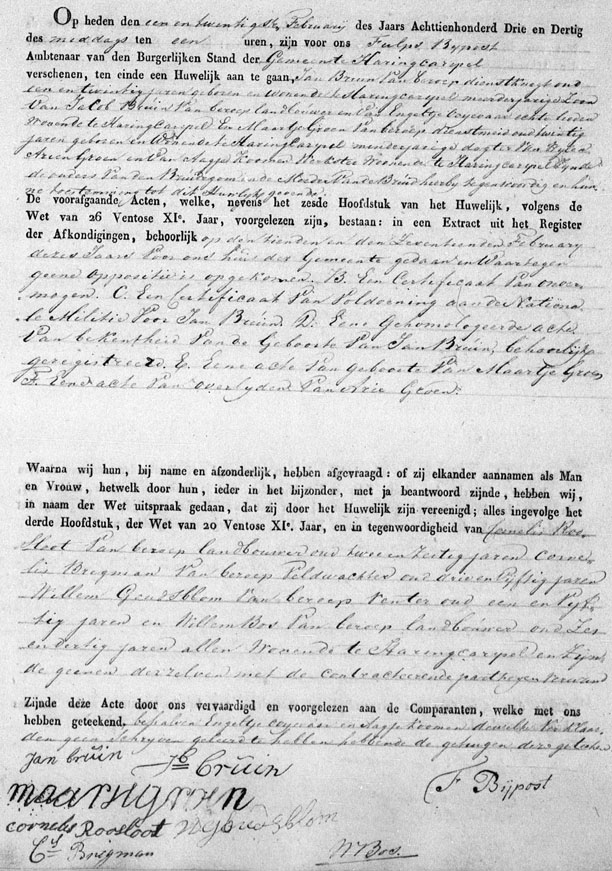 Op heden den een en twintigste February des Jaars Achttienhonderd Drie en Dertig
des middags ten een uren, zijn voor ons Fulps Bijpost
Ambtenaar van den Burgerlijken Stand der Gemeente Haringcarspel
verschenen, ten einde een Huwelijk aan te gaan, Jan Bruin van beroep dienstknegt oud
een en twintig jaren geboren en wonende te Haringcarspel meerderjarige Zoon
van Jacob Bruin van beroep landbouwer en van Engeltje Coijevaar echte lieden
Wonende te Haringcarspel En Maartje Groen van beroep dienstmeid oud twintig
jaren geboren en Wonende te Haringcarspel minderjarige dogter van wijlen
Arien Groen en van Aagje Koomen Wonende te Haringcarspel Zijnde
de ouders van den Bruidegom en de Moeder van de Bruid hierby tegenwoordig en hun
ne toestemming tot dit Huwlijk gevende
De voorafgaande Acten, welke, nevens het zesde Hoofdstuk van het Huwelijk, volgens de
Wet van 26 Ventose XIe. Jaar, voorgelezen zijn, bestaan: in een Extract uit het Register
der Afkondigingen, behoorlijk op den tienden en den Zeventienden February
dezes Jaars voor ons huis der Gemeente gedaan en Waartegen
geene oppositie is opgekomen. B. Een Certificaat van onver
mogen. C. Een Certificaat van Voldoening aan de Nationa
le Militie voor Jan Bruin. D. Eene Gehomologeerde acte
van bekentheid van de Geboorte van Jan Bruin, behoorlijk
geregistreerd. E. Eene acte van geboorte van Maartje Groen
F. Eene acte van overlyden van Arie Groen.
Waarna wij hun, bij name en afzonderlijk, hebben afgevraagd: of zij elkander aannamen als Man
en Vrouw, hetwelk door hun, ieder in het bijzonder, met ja beantwoord zijnde, hebben wij,
in naam der Wet uitspraak gedaan, dat zij door het Huwelijk zijn vereenigd; alles ingevolge het
derde Hoofdstuk, der Wet van 20 Ventose XIe. Jaar, en in tegenwoordigheid van Cornelis Roo
sloot van beroep landbouwer oud twee en Zestig jaren Corne
lis Brugman van beroep Veldwachter oud drie en vyftig jaren
Willem Goudsblom van beroep Venter oud een en vyf
tig jaren en Willem Bos van beroep landbouwer oud Zes
en dertig jaren allen Wonende te Haringcarspel en Zijn
de geenen derzelven met de contracteerende partyen verwand
Zijnde deze Acte door ons vervaardigd en voorgelezen aan de Comparanten, welke met ons
hebben geteekend, behalven Engeltje Coijevaar en Aagje Koomen dewelke verklaar
den geen schryven geleerd te hebben hebbende de getuigen deze getekend
Jan bruin Jb Bruin
maartje groen F Bijpost
cornelis Roosloot W goudsblom
Cs Brugman W Bos.